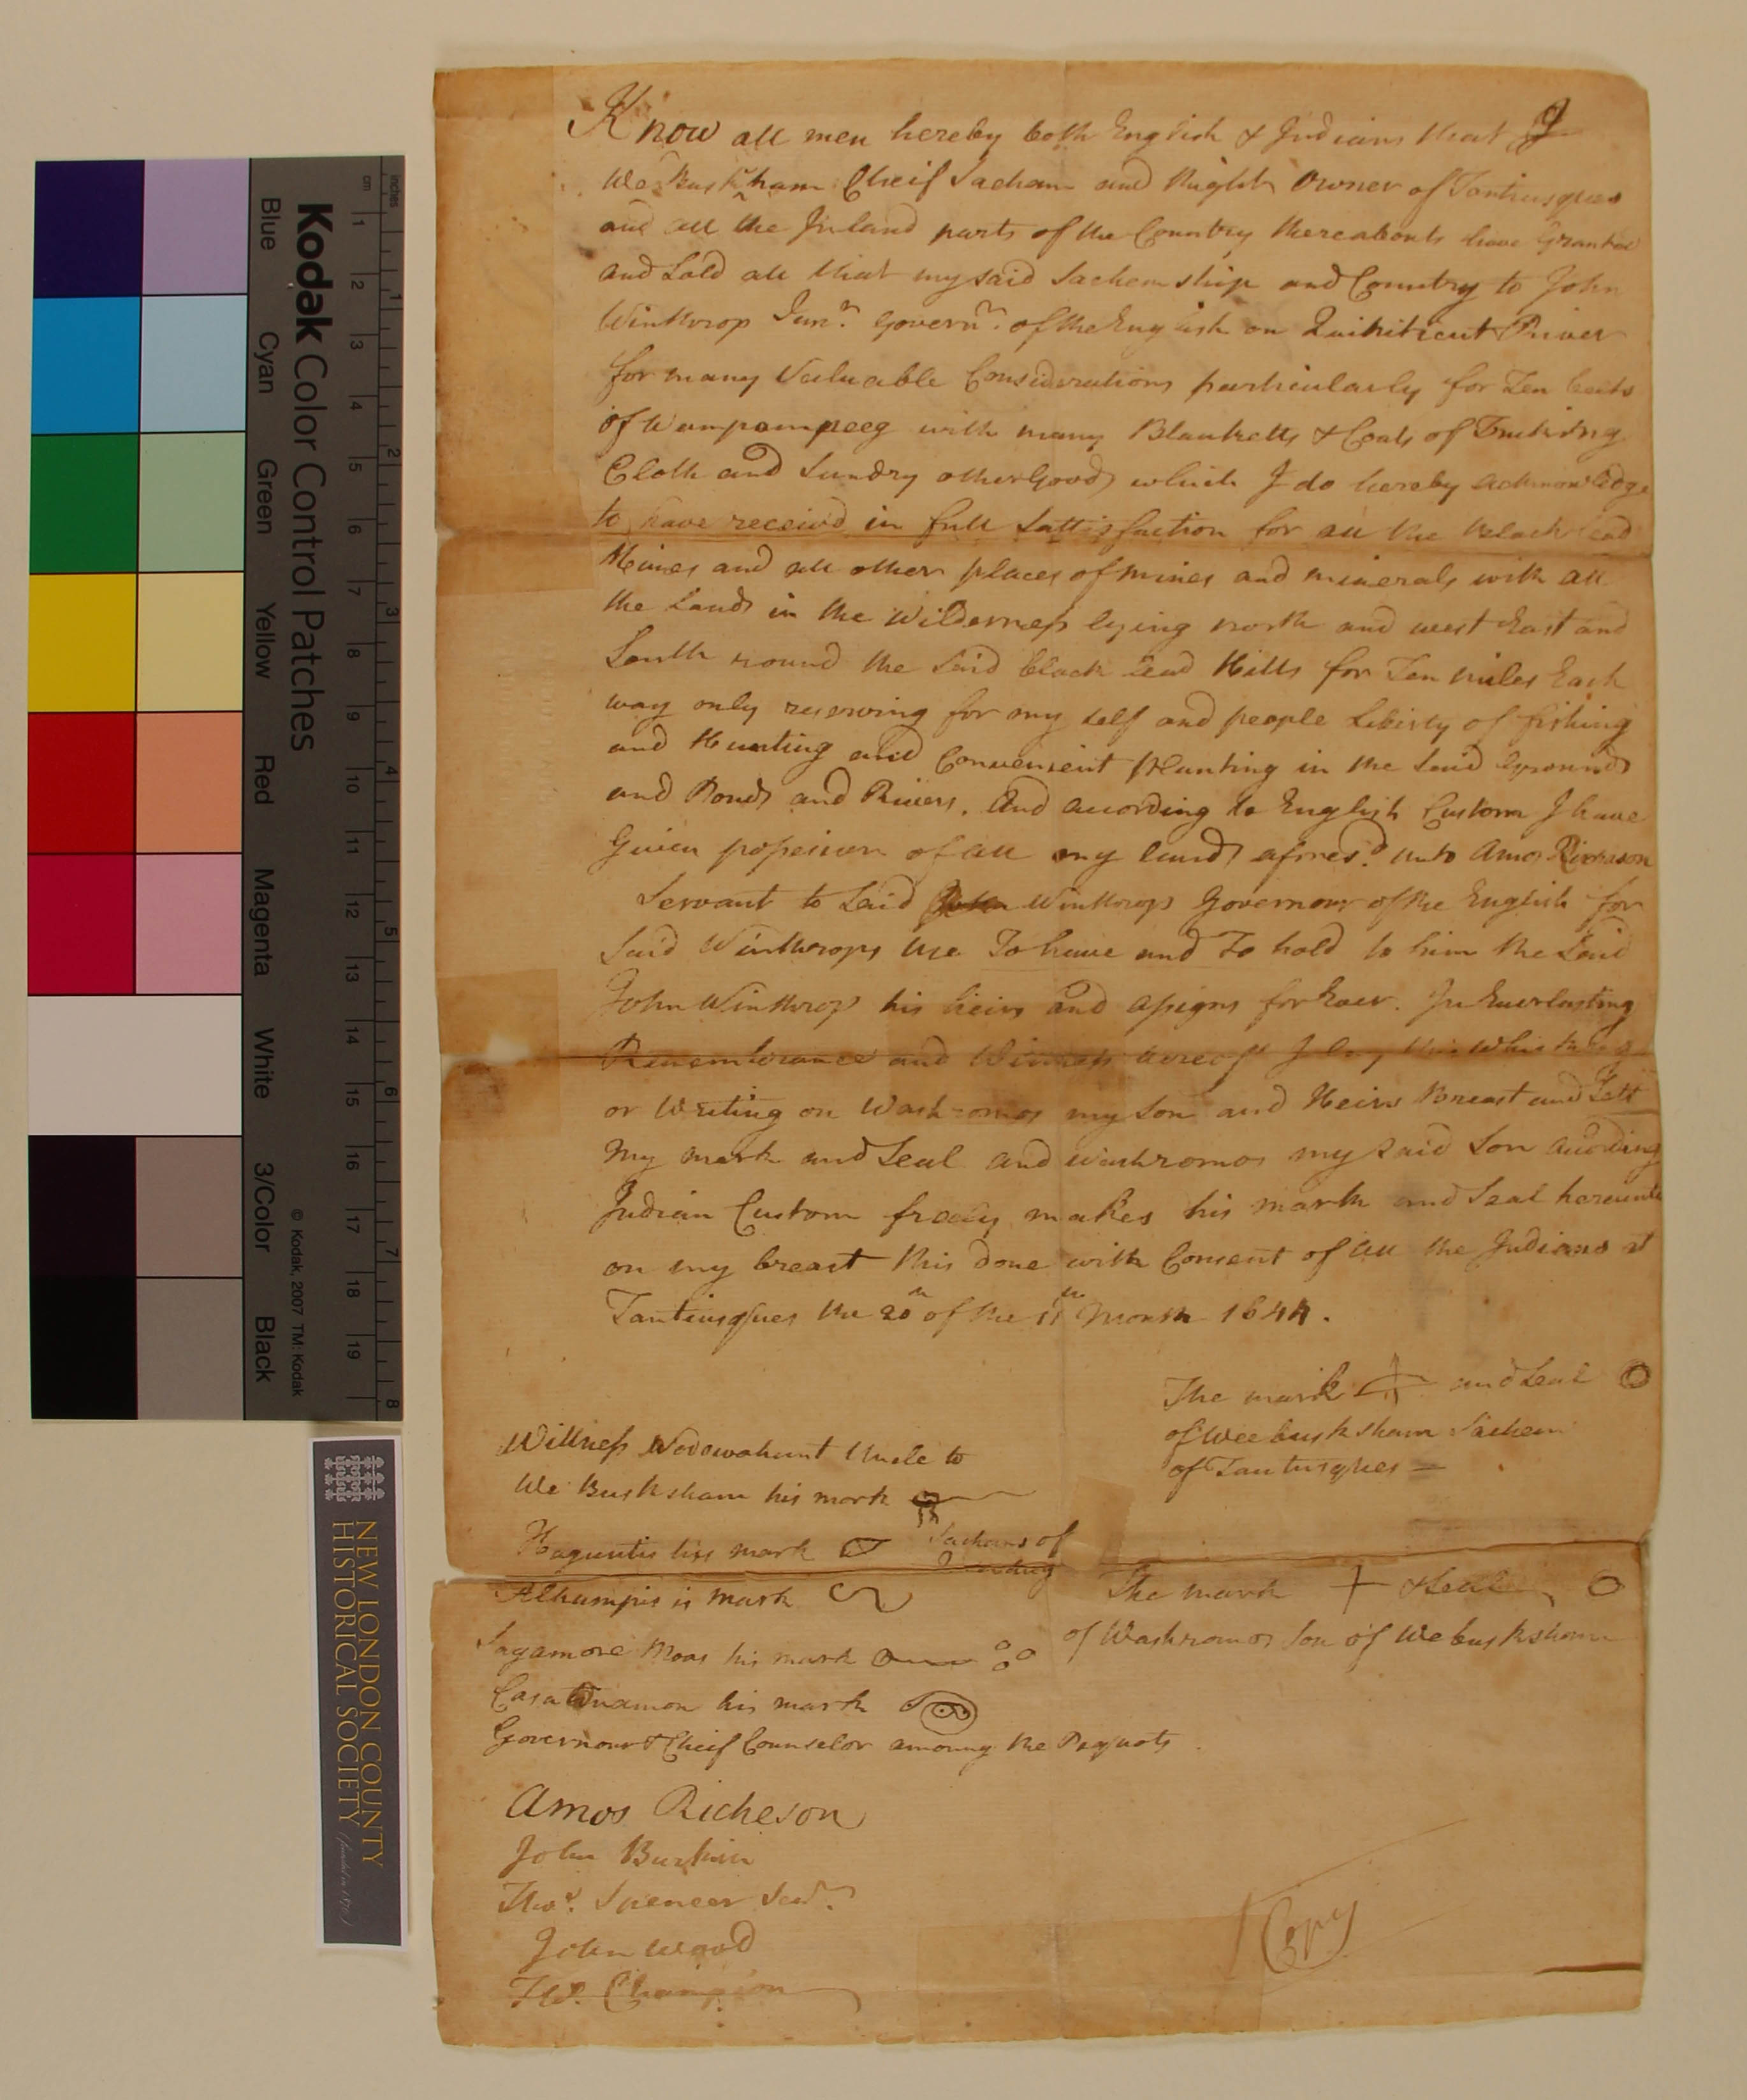 Know all men hereby both English & Indians that I
We Buskham Cheif Sachem and Right Owner of Tantiusques
and all the Inland parts of the Country thereabouts have Granted
and Sold all that my said Sachemship and Country to John
Winthrop Junr. Governr. of the English on Quinticut River
for many Valuable Considerations particularly for Ten belts
of Wampampeeg with many Blanketts & Coats of Trucking
Cloth and Sundry other Goods which I do hereby acknowledge
to have receivd in full Sattisfaction for all the black lead
Meines and all other places of mines and minerals with all
the Lands in the Wilderness lying north and west East and
South round the Said black lead Hills for Ten miles Each
way only reserving for my self and people Liberty of fishing
and Hunting and Convenient Planting in the Said Grounds
and Ponds and Rivers. And according to English Custom I have
Given possession of all my lands aforesd. unto Amos Richason
Servant to Said John Winthrop Governour of the English for
Said Winthrops Use To have and To hold to him the Said
John Winthrop his heirs and assigns for Ever. In Everlasting
Rememberance and Witness hereof I lay this
or Writing on Washromos my Son and Heirs Breast and Sett
My mark and Seal and Washromos my Said Son acording
Indian Custom freely makes his mark and Seal hereunto
on my breast this done with Consent of all the Indians at
Tantiusques the 20th of the 11th Month 1644.
The mark and Seal
of Weebusksham Sachem
of Tantiusques
Wittness Nodowahunt Uncle to
We Busksham his mark
Haguntis his mark Sachems of
Alhumpis is mark
The mark & Seal
of Washromos Son of Webusksham
Sagamore Moas his mark
Casasinamon his mark
Governour & Cheif Counselor among the Pequots.
Amos Richeson
John Burkin
Thos. Spencer
John Wood
Thos. Champion
Copy
Kodak Color Control Patches
Blue Cyan Green Yellow Red Magenta White 3/Color Black
inches 1 2 3 4 5 6 7 8
cm 1 2 3 4 5 6 7 8 9 10 11 12 13 14 15 16 17 18 19
© Kodak, 2007 TM: Kodak
NEW LONDON COUNTY
HISTORICAL SOCIETY (founded in 1870)